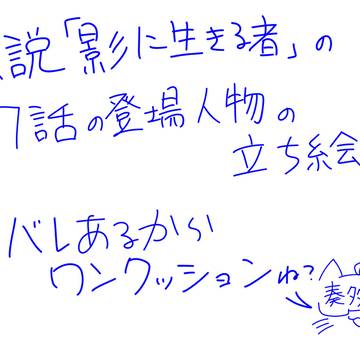 説「影に生きる者」の
7話の登場人物の
立ち絵
バレあるから
ワンクッションね?
奏多